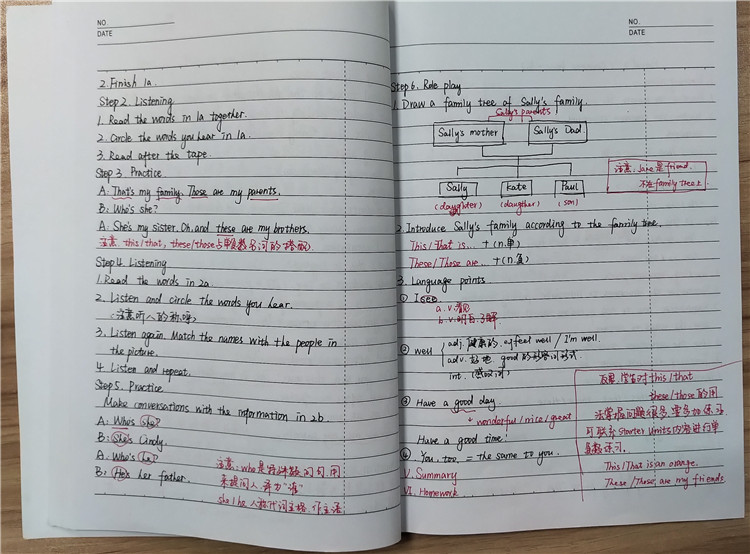 NO.
DATE
2. Finish 1a.
Step 2. Listening
1. Read the words in 1a together.
2. Circle the words you hear in 1a.
3. Read after the tape.
Step 3. Practice
A: That's my family. Those are my parents.
B: Who's she?
A: She's my sister. Oh, and these are my brothers.
注意 this/that, these/those与单复数名词的搭配
Step 4. Listening
1. Read the words in 2a.
2. Listen and circle the words you hear.
(注意听人的称呼)
3. Listen again. Match the names with the people in
the picture.
4. Listen and repeat.
Step 5. Practice
Make conversations with the information in 2b.
A: Who's she?
B: She's Cindy.
A: Who's he?
B: He's her father.
注意: who是特殊疑问句, 用
来提问人, 译为"谁"
she/he 人称代词主格, 作主语
NO.
DATE
Step 6. Role play
1. Draw a family tree of Sally's family.
Sally's parents
Sally's mother
Sally's Dad
Sally
Kate
Paul
(daughter)
(daugther)
(son)
注意: Jane是friend,
不在family tree上
2. Introduce Sally's family according to the family tree.
This/That is... + (n.单)
These/Those are... + (n.复)
3. Language points
① I see
a. v. 看见
b. v. 明白, 了解
② well
adj. 健康的. eg feel well / I'm well.
adv. 好地. good的副词形式
int. (感叹词)
③ Have a good day.
wonderful/nice/great
Have a good time!
④ You, too. = the same to you.
V. Summary
VI. Homework
反思: 学生对this/that
these/those的用
法掌握问题很多, 要多加练习
可联系Starter Units内容进行单
复数练习.
This/That is an orange.
These/Those are my friends.